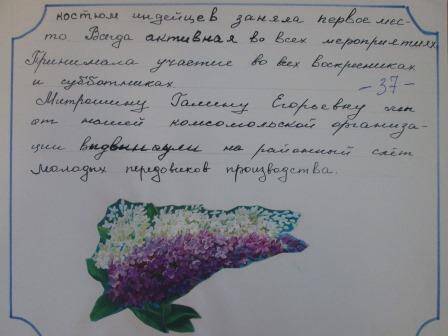 костюм индейцев заняла первое мес-
то Всегда активная во всех мероприятиях.
Принимала участие во всех воскресниках
и субботниках. -37-
Митрошину Галину Егорьевну мы
от нашей комсомольской организа-
ции выдвинули на районный слёт
молодых передовиков производства.